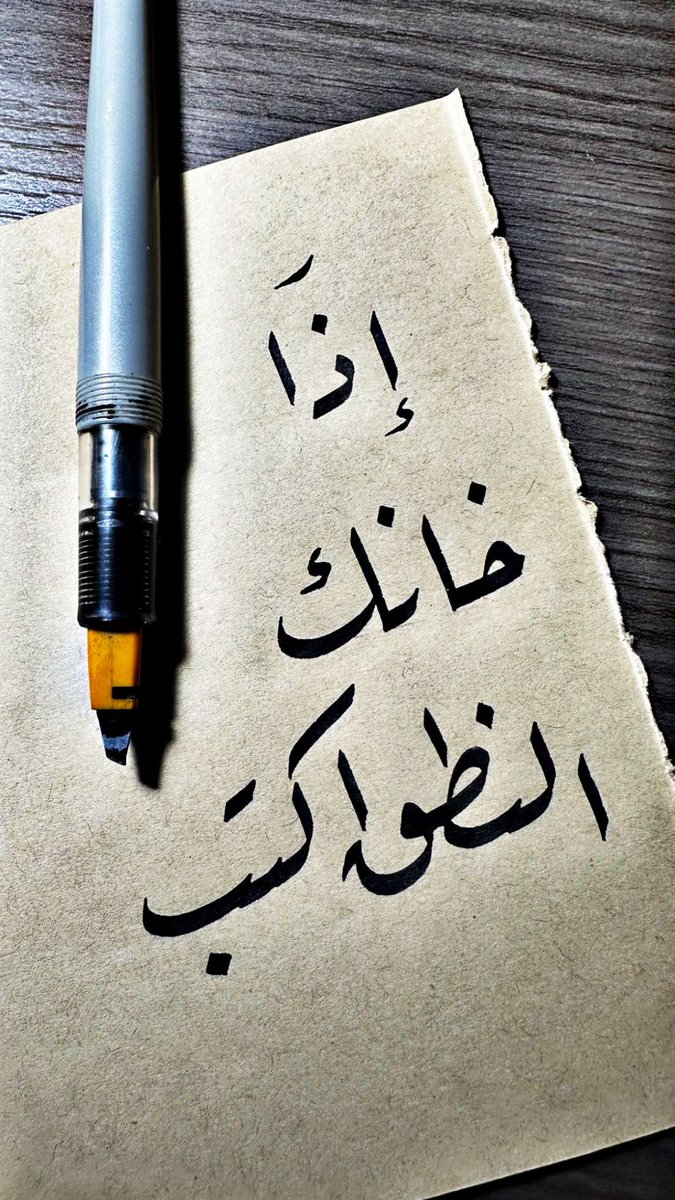 إذَا
خانك
النطق اكتب